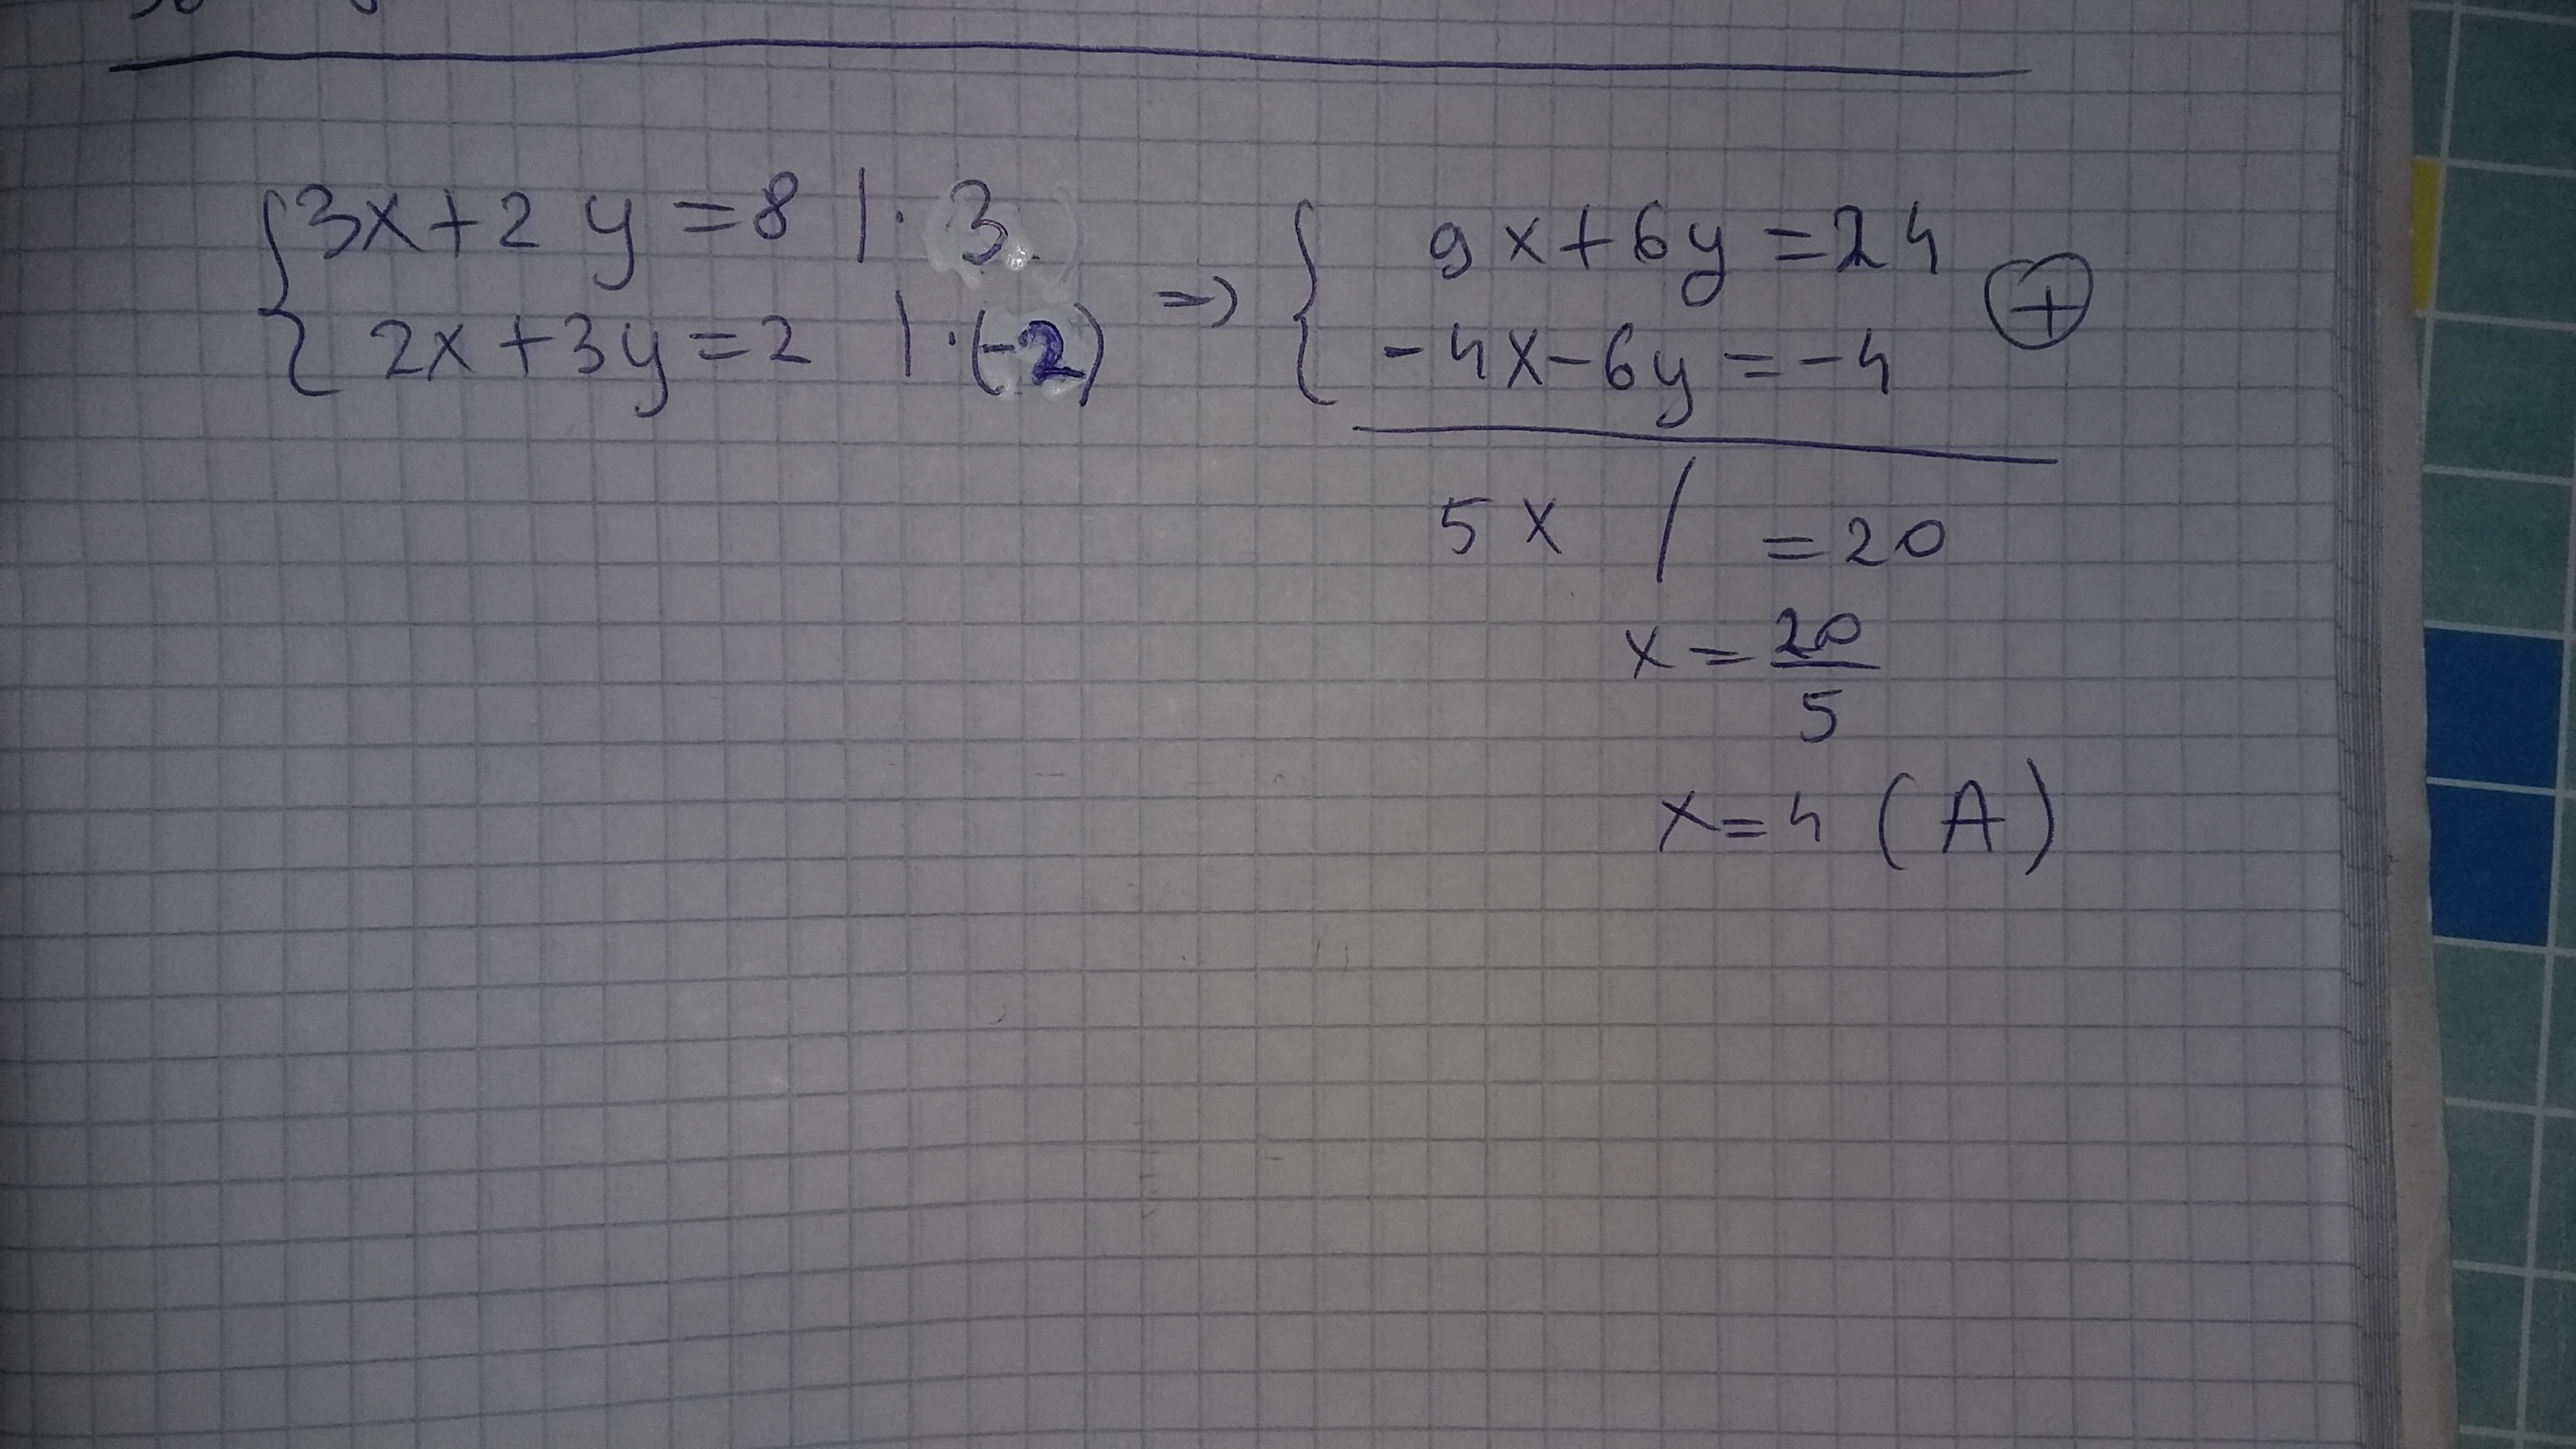 3x+2y=8 |·3
2x+3y=2 |·(-2)
=>
9x+6y=24
-4x-6y=-4
+
5x / =20
x=20/5
x=4 (A)